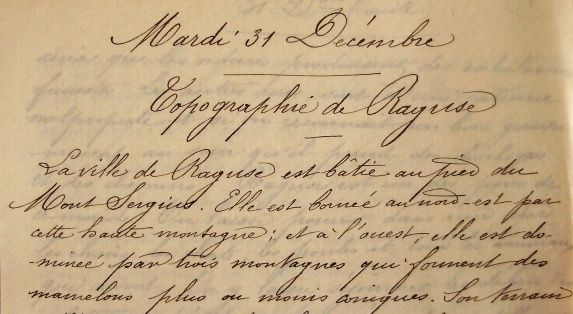 Mardi 31 Décembre
Topographie de Raguse
La ville de Raguse est bâtie au pied du
Mont Sergius. Elle est bornée au nord-est par
cette haute montagne; et à l'ouest, elle est do-
-minée par trois montagnes qui forment des
mamelons plus ou moins coniques. Son terrain